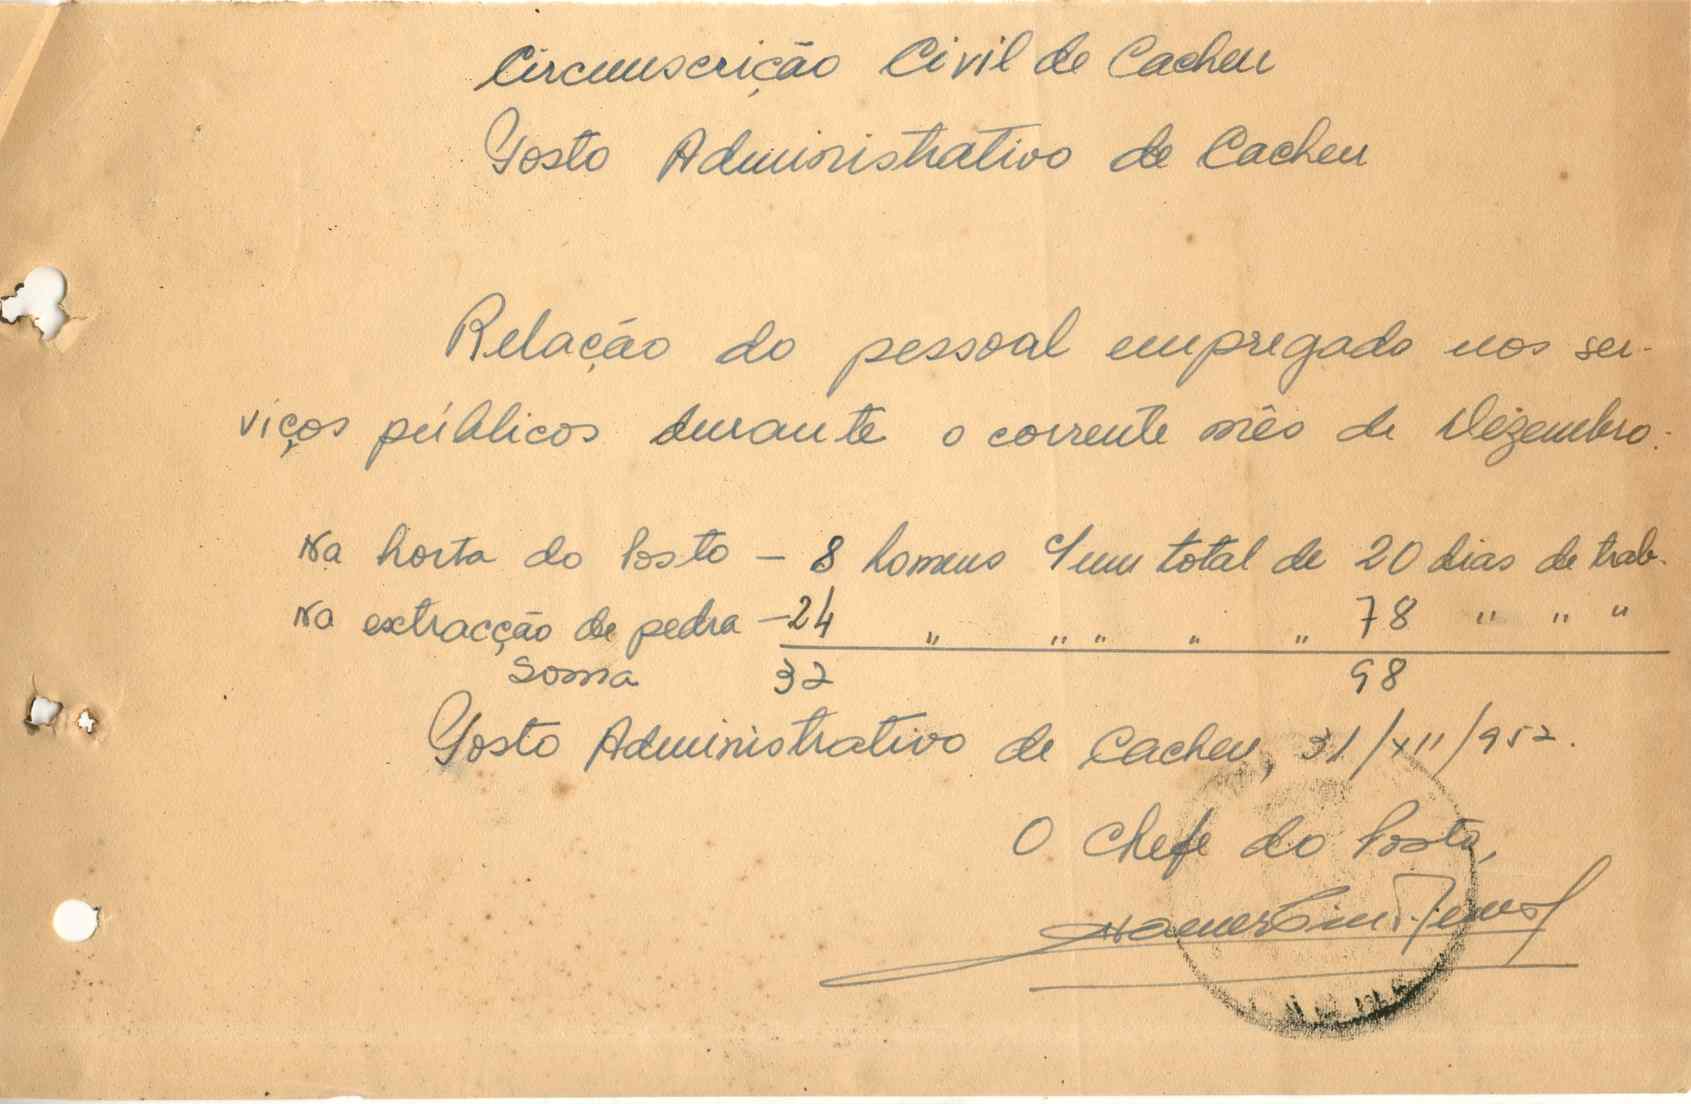 Circunscrição Civil de Cacheu
Posto Administrativo de Cacheu
Relação do pessoal empregado nos ser-
viços públicos durante o corrente mês de Dezembro:
Na horta do Posto - 8 homens c/ um total de 20 dias de trab.
Na extracção de pedra - 24 " " " " " 78 " " "
Soma 32 98
Posto Administrativo de Cacheu, 31/XII/952.
O Chefe do Posto,